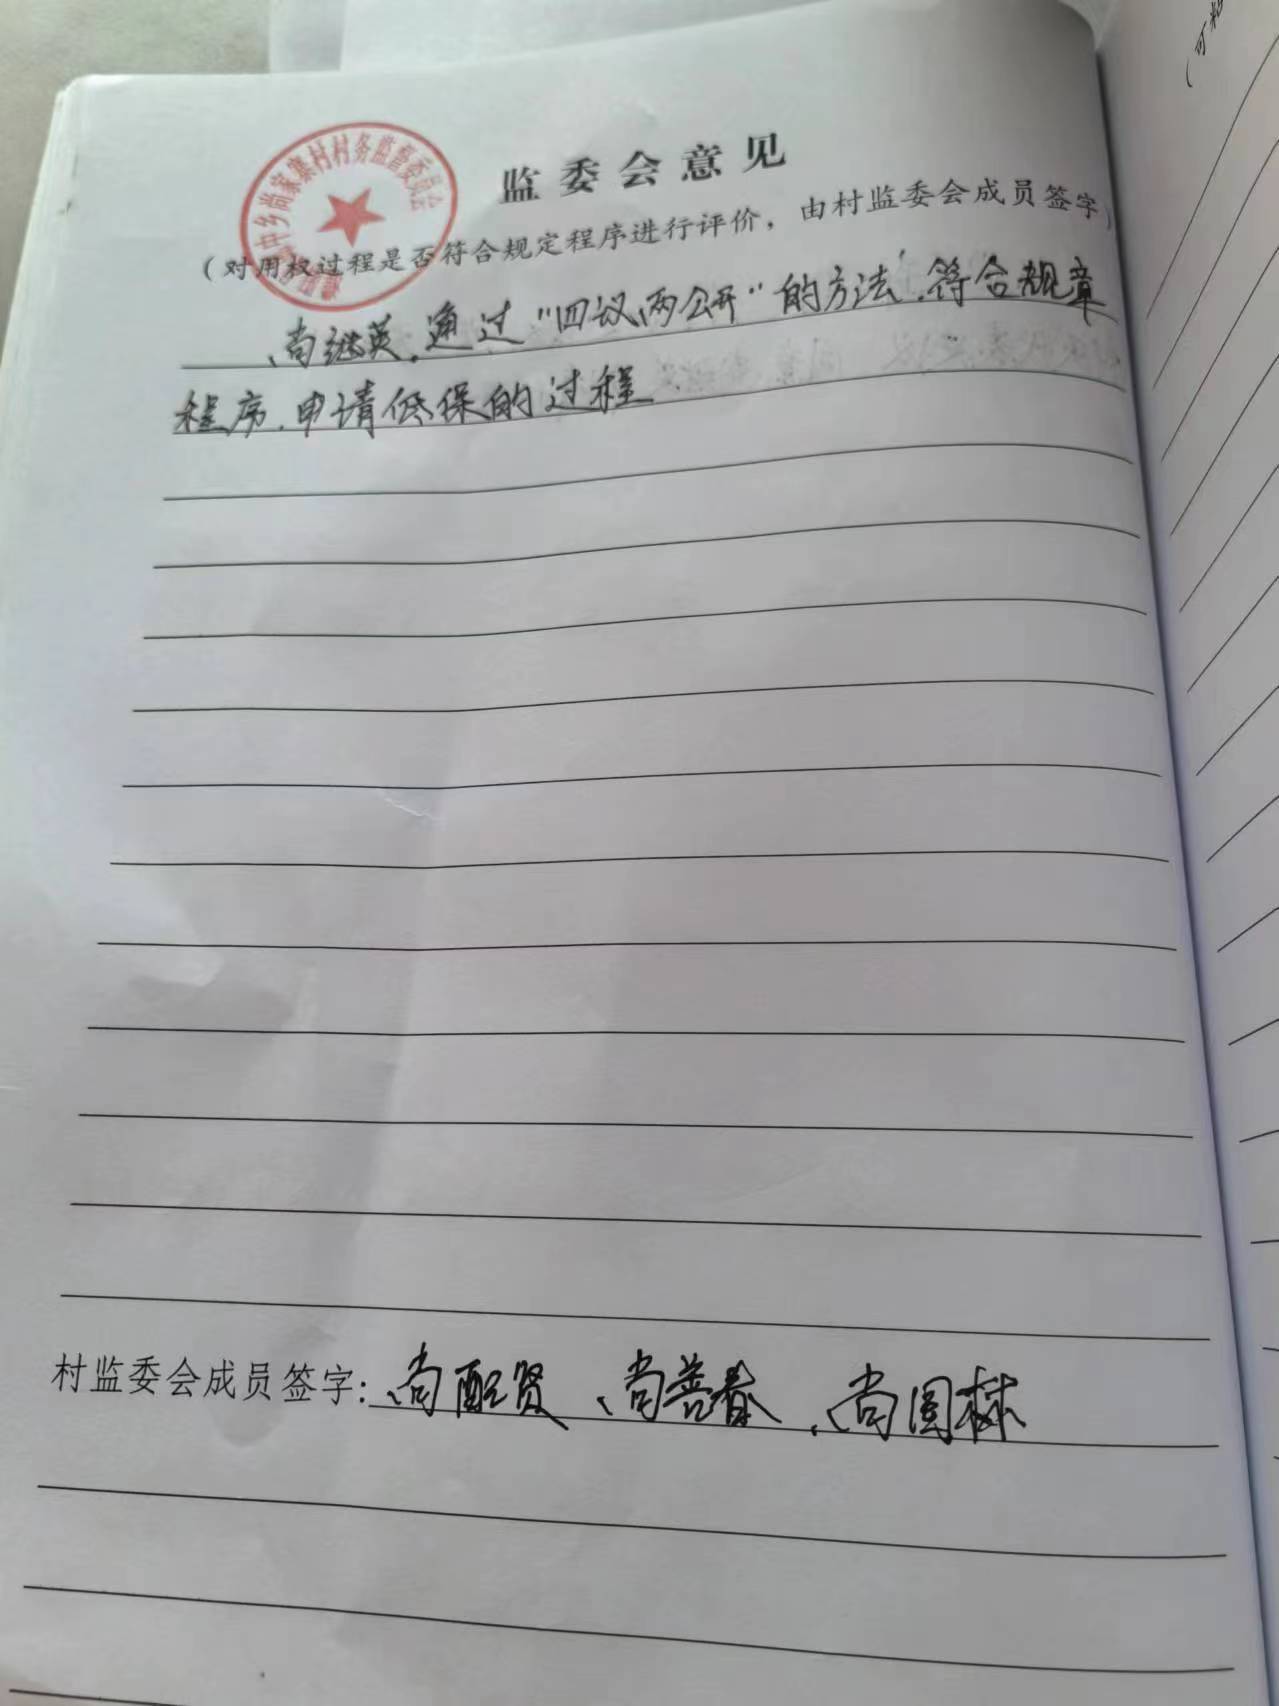 监委会意见
（对用权过程是否符合规定程序进行评价，由村监委会成员签字）
尚继英，通过“四议两公开”的方法，符合规章
程序，申请低保的过程
村监委会成员签字：尚配贤、尚善春、尚国林
中乡尚家寨村村务监督委员会
（可粘